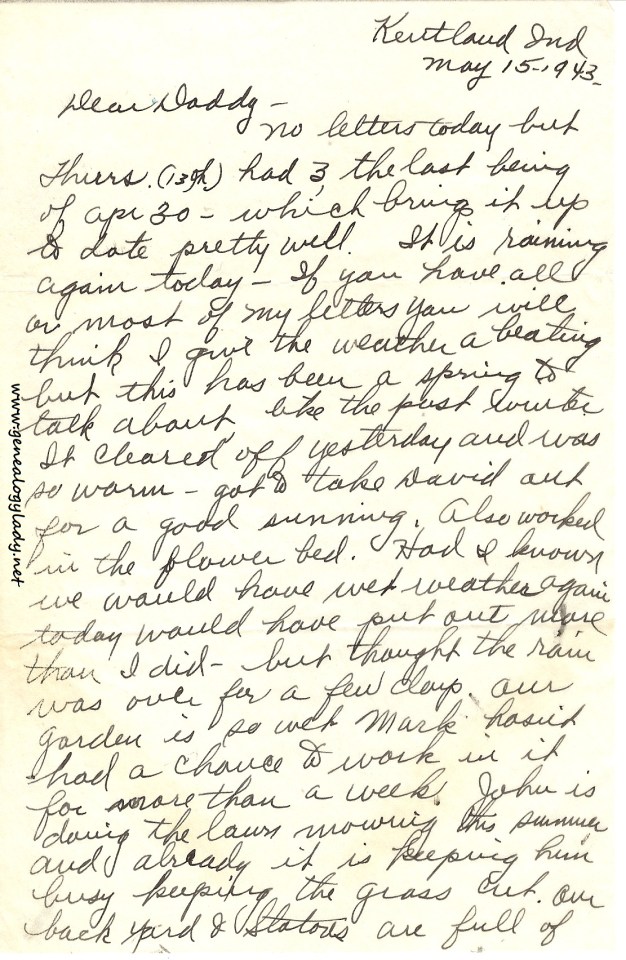 Kentland Ind
May 15-1943-
Dear Daddy -
No letters today but
Thurs. (13th) had 3, the last being
of Apr 30 - which bring it up
to date pretty well. It is raining
again today - If you have all
or most of my letters you will
think I give the weather a beating
but this has been a spring to
talk about, like the past winter
It cleared off yesterday and was
so warm - got to take David out
for a good sunning. Also worked
in the flower bed. Had I known
we would have wet weather again
today would have put out more
than I did - but thought the rain
was over for a few days. Our
garden is so wet Mark hasn't
had a chance to work in it
for more than a week. John is
doing the lawn mowing this summer
and already it is keeping him
busy keeping the grass cut. Our
back yard & Statons are full of
www.genealogylady.net